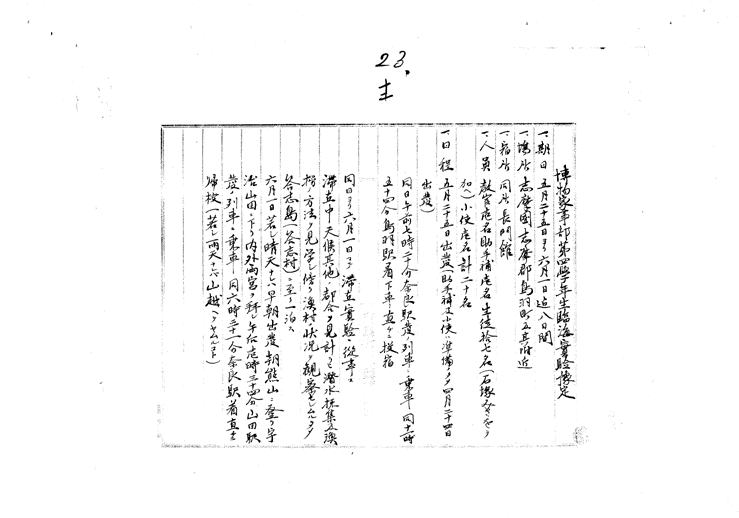 23.
博物家事部第四学年生臨海実験豫定
一、期日 五月二十五日ヨリ六月一日迄八日間
一、場所 志摩國志摩郡鳥羽町及其附近
一、宿所 同所長門館
一、人員 教官壱名助手補壱名生徒拾七名(石塚みさをヲ
加ヘ)小使壱名計二十名
一、日程 五月二十五日出発(助手補及小使ハ準備ノタメ四月二十四日
出発)
同日午前七時二十分奈良駅発ノ列車ニ乗車同十一時
五十四分鳥羽駅着下車直ニ投宿
同日ヨリ六月一日マデ滞在実験ニ従事ス
滞在中天候其他ノ都合ヲ見計ヒ潜水採集及漁
撈方法ヲ見学シ傍ラ漁村状況ヲ観察セシムルタメ
答志島(答志村)ニ至リ一泊ス
六月一日若シ晴天ナレバ早朝出発朝熊山ニ登リ宇
治山田ニ下リ内外両宮ヲ拝シ午后壱時三十四分山田駅
発ノ列車ニ乗車 同六時二十一分奈良駅着直ニ
帰校(若シ雨天ナレバ山越ヘヲナサズ)